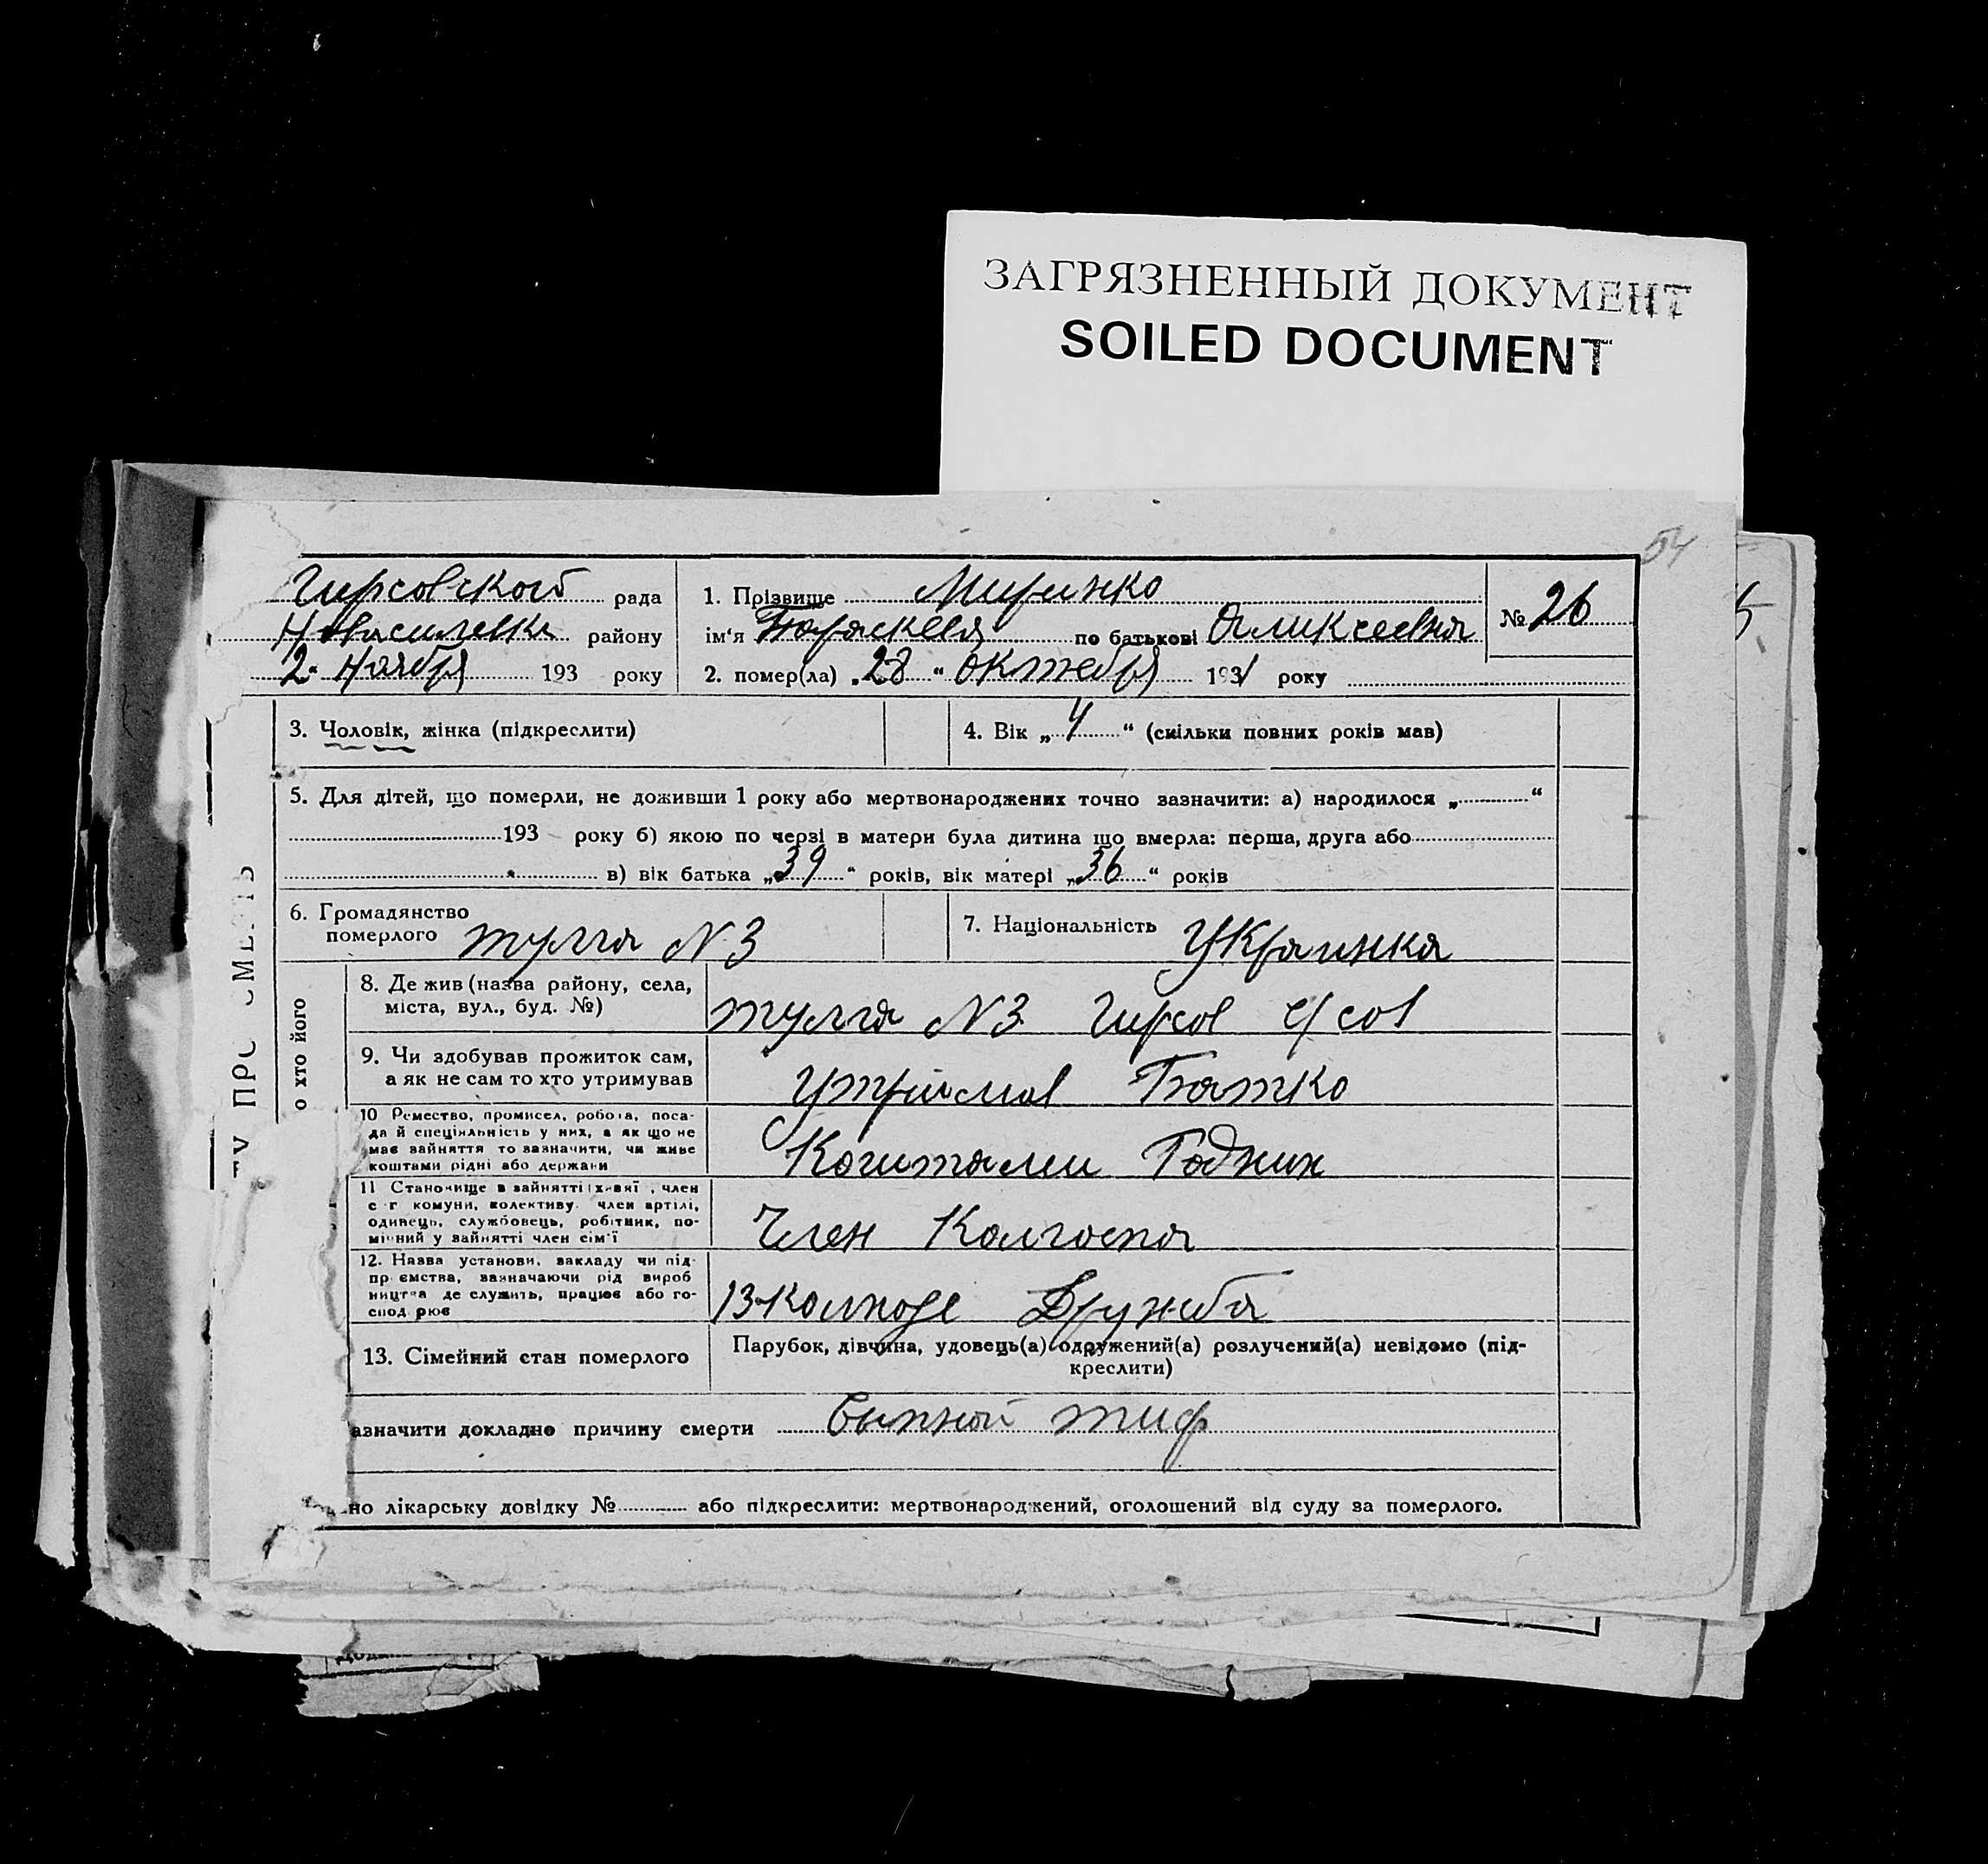 ЗАГРЯЗНЕННЫЙ ДОКУМЕНТ
SOILED DOCUMENT
54
Гирсовской рада
Н Василевка району
2 Ноября 193 року
1. Прізвище Миринко
ім'я Параскева по батькові Алик сеевна
№ 26
2. помер(ла) „28“ Октября 1931 року
3. Чоловік, жінка (підкреслити)
4. Вік „4“ (скільки повних років мав)
5. Для дітей, що померли, не доживши 1 року або мертвонароджених точно зазначити: а) народилося „ “
193 року б) якою по черзі в матери була дитина що вмерла: перша, друга або
в) вік батька „39“ років, вік матері „36“ років
6. Громадянство
померлого
N 3
7. Національність Украинка
8. Де жив (назва району, села,
міста, вул., буд. №)
N3 Гирсов с/сов
9. Чи здобував прожиток сам,
а як не сам то хто утримував
Утримов Батко
10 Ремество, промисел, робота, поса-
да й спеціяльність у них, а як що не
має зайняття то зазначити, чи живе
коштами рідні або держави
Коштами Родних
11 Становище в зайнятті , член
с-г комуни, колективу член артілі,
одинець, службовець, робітник, по-
мічний у зайнятті член сім'ї
Член Колгоспа
12. Назва установи, закладу чи під-
пр ємства, зазначаючи рід вироб
ництва де служить, працює або го-
спод рює
Дружба
13. Сімейний стан померлого
Парубок, дівчина, удовець(а) одружений(а) розлучений(а) невідомо (під-
креслити)
азначити докладно причину смерти Сыпной тиф
но лікарську довідку № або підкреслити: мертвонароджений, оголошений від суду за померлого.
ТУ ПРО СМЕРТЬ
о хто його